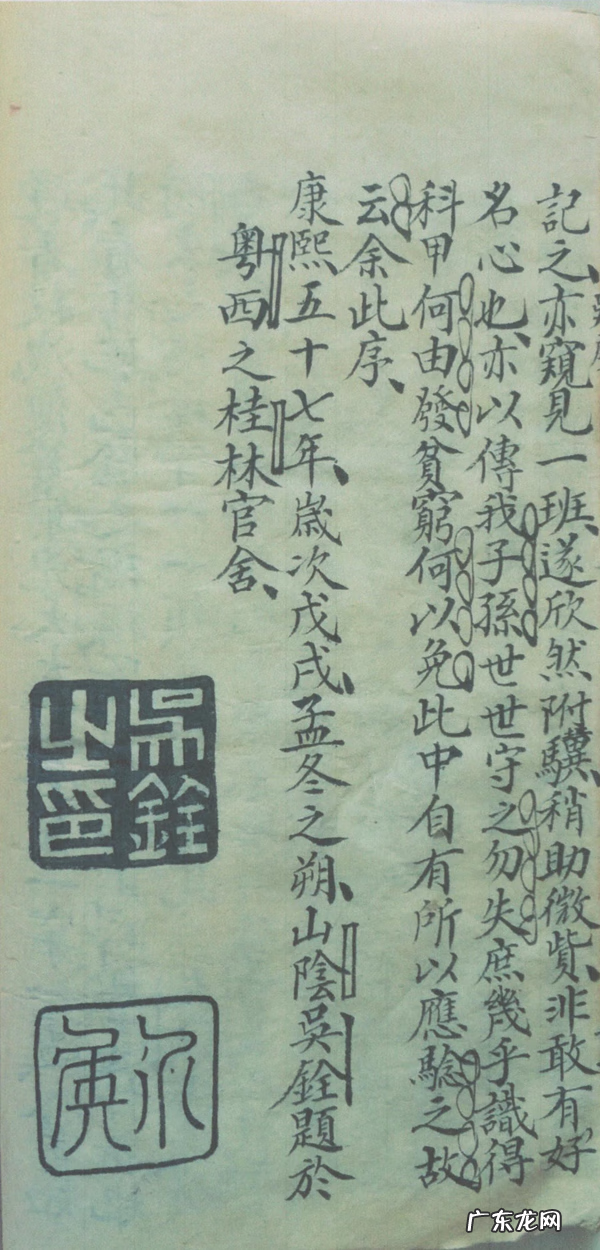 記之、亦窺見一班、遂欣然附驥、稍助微貲、非敢有好
名心也、亦以傳我子孫世世守之勿失庶幾乎識得
科甲何由發貧窮何以免此中自有所以應驗之故
云余此序、
康熙五十七年、歲次戊戌、孟冬之朔、山陰吳銓題於
粵西之桂林官舍、
吳銓
之印
广东龙网